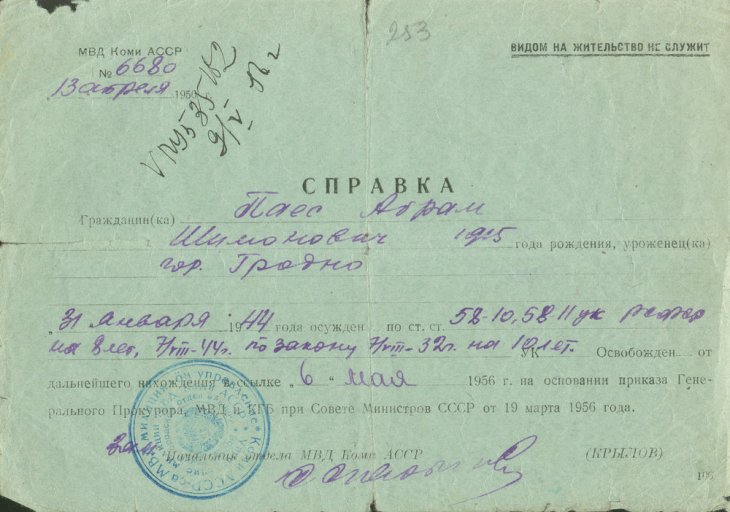 253
МВД Коми АССР
№ 6680
13 апреля 1956
9/V 56 г
ВИДОМ НА ЖИТЕЛЬСТВО НЕ СЛУЖИТ
СПРАВКА
Гражданин(ка) Паес Абрам
Шимонович 1915 года рождения, уроженец(ка)
гор. Гродно
"31 января 1944 года осужден по ст. ст. 58-10, 58-11 ук РСФСР
на 8 лет, 7/VIII-44г. по закону 7/VIII-32г. на 10 лет. УК Освобожден от
дальнейшего нахождения в ссылке "6" мая 1956 г. на основании приказа Гене-
рального Прокурора, МВД и КГБ при Совете Министров СССР от 19 марта 1956 года.
Зам. Начальник отдела МВД Коми АССР (КРЫЛОВ)
195